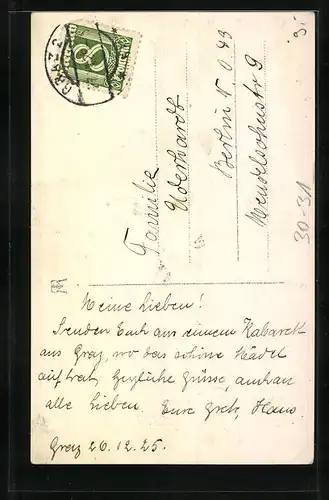 GRAZ 2
8
Familie
Aderhardt
Berlin N.O. 43
Mendelsohnstr 9
30-31
Meine Lieben!
Senden Euch aus einem Kabarett
aus Graz, wo das schöne Mädel
auftrat, herzliche Grüsse, an
alle Lieben. Eure Grete, Hans.
Graz 26.12.25.